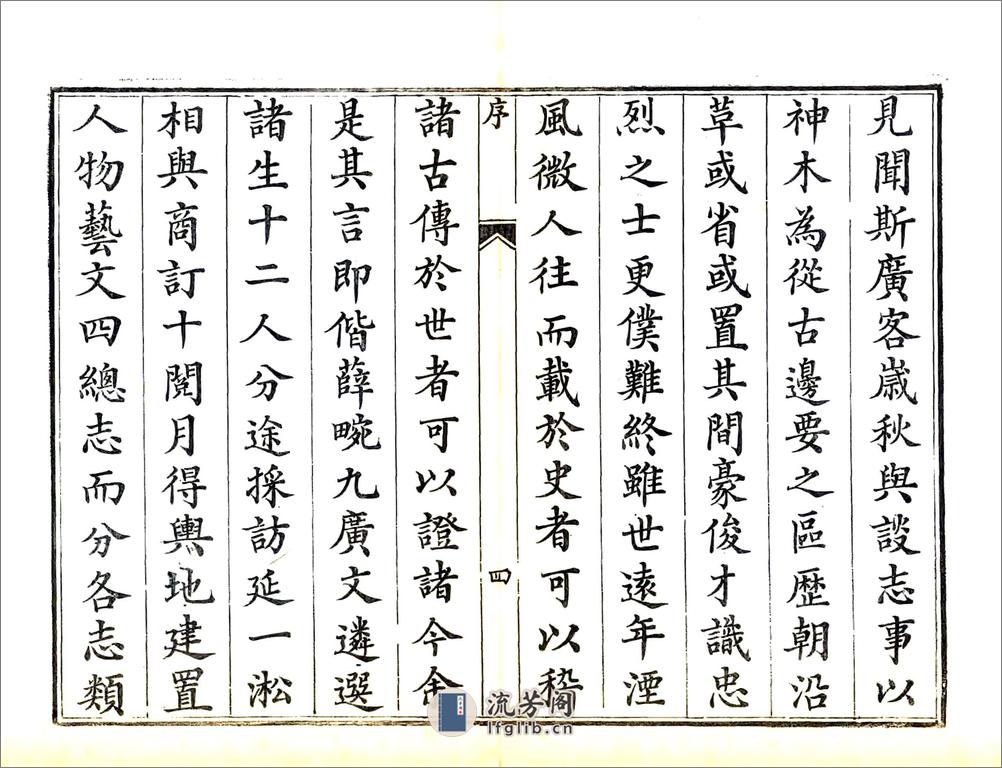 見聞斯廣客嵗秋與談志事以
神木為從古邊要之區歴朝沿
草或省或置其間豪俊才識忠
烈之士更僕難終雖世遠年湮
風微人往而載於史者可以稽
序
四
諸古傳於世者可以證諸今余
是其言即偕薛畹九廣文遴選
諸生十二人分途採訪延一淞
相與商訂十閱月得輿地建置
人物藝文四總志而分各志類
流芳阁
lfglib.cn